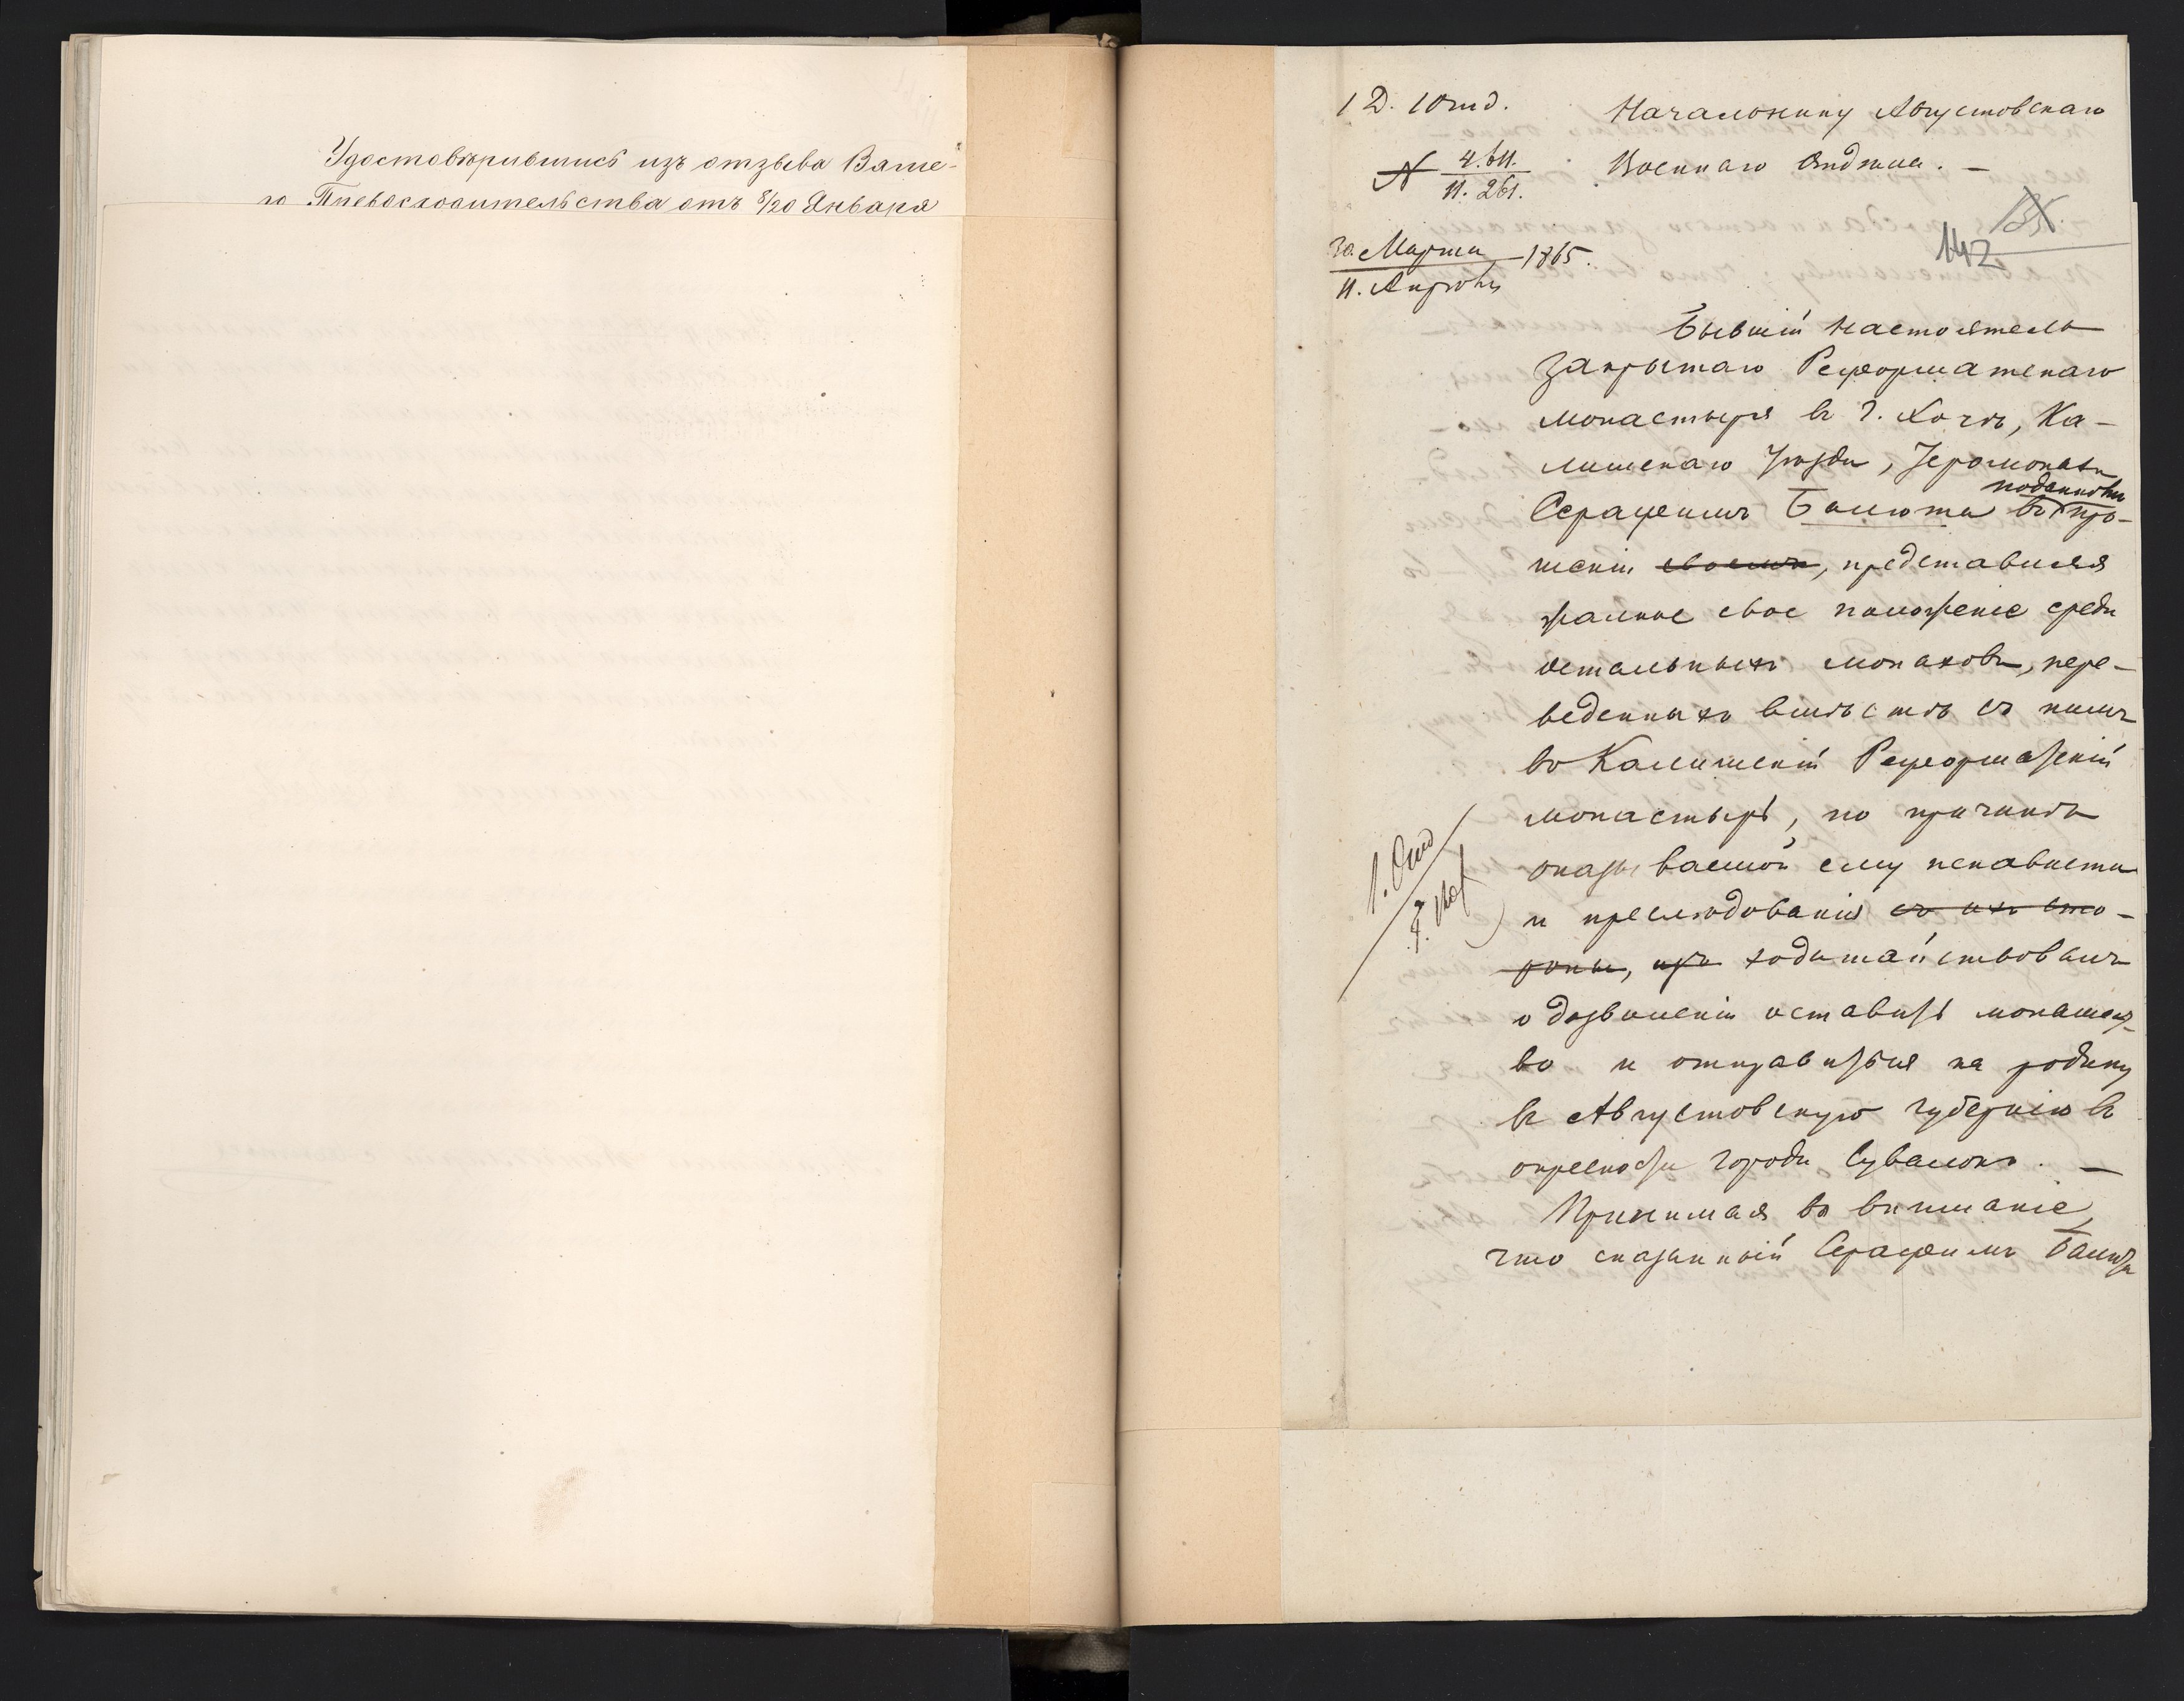 Удостовѣрившись изъ отзыва Ваше-
го Превосходительства отъ 8/20 Января
1 Д. 1 Отд.
Начальнику Августовскаго
Военнаго Отдѣла. —
№ 4.611.
11. 261.
142
30. Марта 1865.
11. Апрѣля
Бывшій Настоятель
Закрытаго Реформатскаго
монастыря въ г. Хочѣ, Ка-
лишскаго Уѣзда, Іеромонахъ
Серафимъ Балюта въ про-
шеніи своемъ, представляя
жалкое свое положеніе среди
остальныхъ монаховъ, пере-
веденныхъ вмѣстѣ съ нимъ
въ Калишскій Реформатскій
монастырь, по причинѣ
оказываемой ему ненависти
и преслѣдованія съ ихъ сто-
роны, ходатайствовалъ
о дозволеніи оставить монашест-
во и отправиться на родину
въ Августовскую губернію въ
окрестности города Сувалокъ. —
Принимая во вниманіе,
что сказанный Серафимъ Балюта
1. Отд